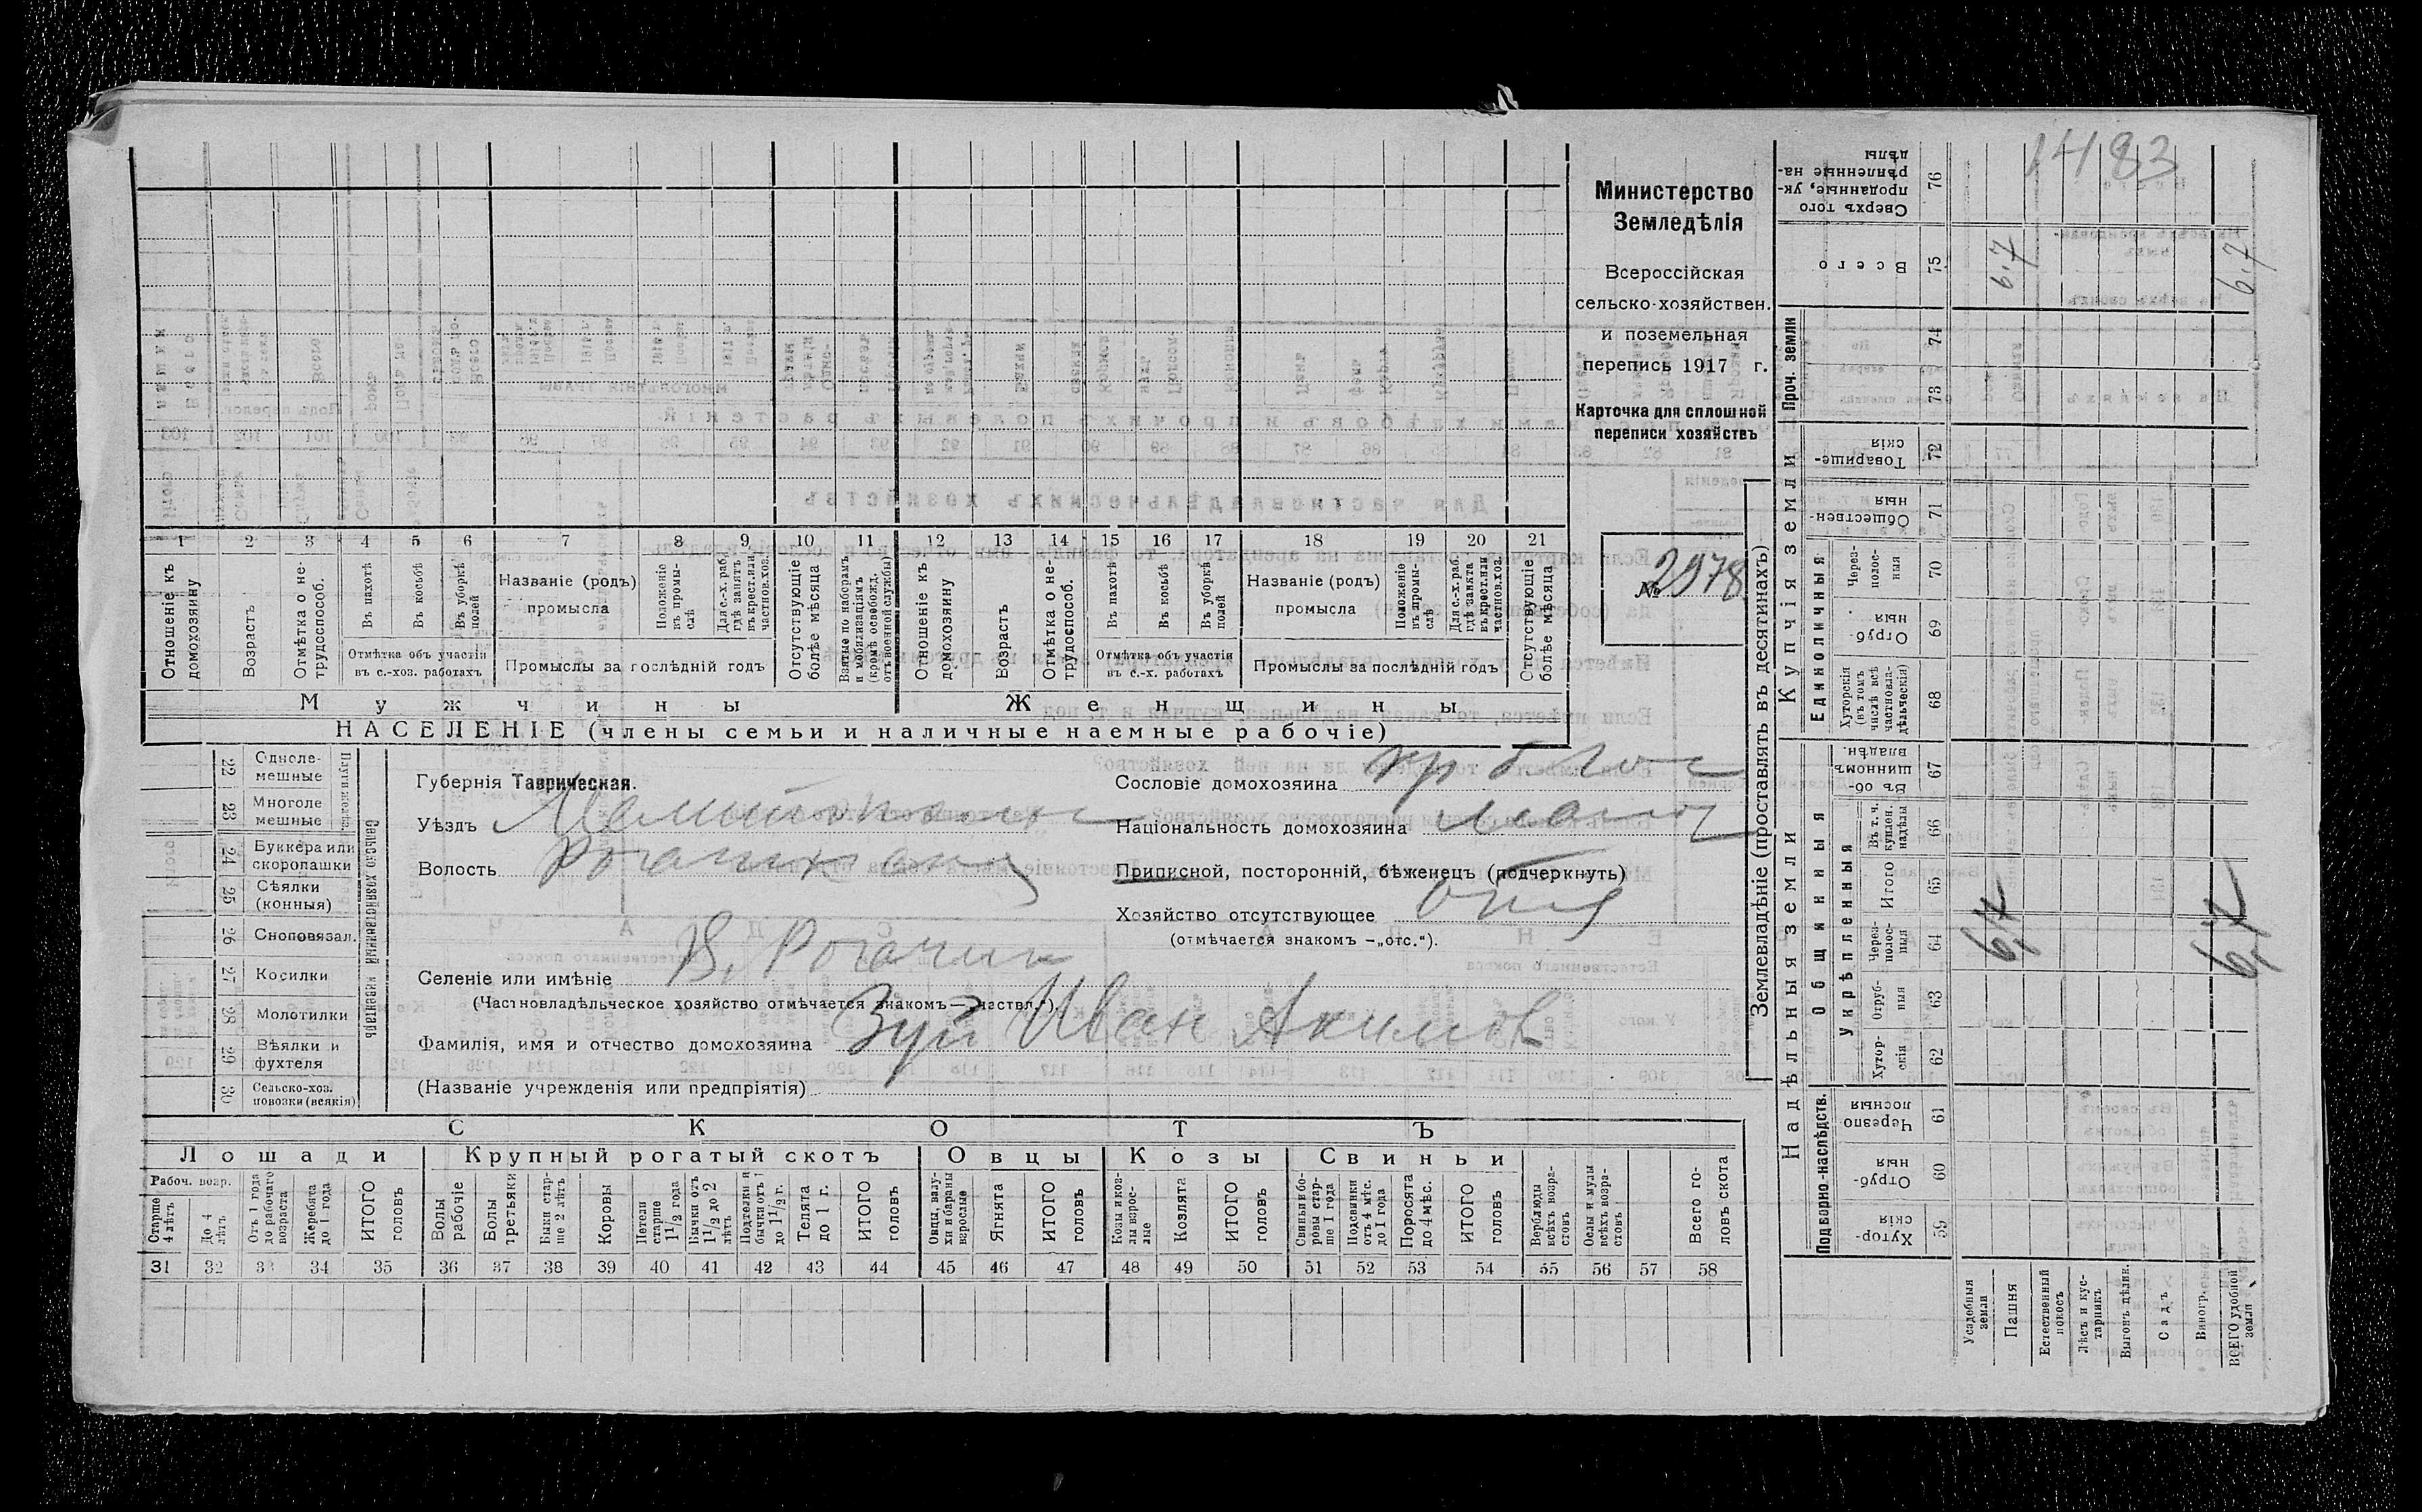 1483
Министерство
Земледѣлія
Всероссійская
сельско-хозяйствен.
и поземельная
перепись 1917 г.
Карточка для сплошной
переписи хозяйствъ
№ 2978
1 2 3 4 5 6 7 8 9 10 11 12 13 14 15 16 17 18 19 20 21
Отношеніе къ домохозяину
Возрастъ
Отмѣтка о не-трудоспособ.
Въ пахотѣ
Въ косьбѣ
Въ уборкѣ полей
Отмѣтка объ участіи
въ с.-хоз. работахъ
Названіе (родъ)
промысла
Положеніе въ промы-слѣ
Для с.-х. раб. гдѣ занятъ въ крест. или частнов. хоз.
Промыслы за послѣдній годъ
Отсутствующіе болѣе мѣсяца
Взятые по наборамъ и мобилизаціямъ (кромѣ освобожд. отъ военной службы)
Отношеніе къ домохозяину
Возрастъ
Отмѣтка о не-трудоспособ.
Въ пахотѣ
Въ косьбѣ
Въ уборкѣ полей
Отмѣтка объ участіи
въ с.-х. работахъ
Названіе (родъ)
промысла
Положеніе въ промы-слѣ
Для с.-х. раб. гдѣ занята въ крест. или частнов. хоз.
Промыслы за послѣдній годъ
Отсутствующіе болѣе мѣсяца
Мужчины
Женщины
НАСЕЛЕНІЕ (члены семьи и наличные наемные рабочіе)
22 Одноле-мешные
23 Многоле мешные
24 Буккера или скоропашки
25 Сѣялки (конныя)
26 Сноповязал.
27 Косилки
28 Молотилки
29 Вѣялки и фухтеля
30 Сельско-хоз. повозки (всякія)
Плуги желѣз.
Сельско-хозяйственный инвентарь
Губернія Таврическая.
Уѣздъ
Волость
Селеніе или имѣніе В. Рогачик
(Частновладѣльческое хозяйство отмѣчается знакомъ—„частвл.“).
Фамилія, имя и отчество домохозяина Зуй Иван Акимов
(Названіе учрежденія или предпріятія)
Сословіе домохозяина
Національность домохозяина
Приписной, посторонній, бѣженецъ (подчеркнуть)
Хозяйство отсутствующее
(отмѣчается знакомъ —„отс.“).
СКОТЪ
Лошади
Крупный рогатый скотъ
Овцы
Козы
Свиньи
Рабоч. возр.
Старше 4 лѣтъ
До 4 лѣтъ
Отъ 1 года до рабочаго возраста
Жеребята до 1 года
ИТОГО головъ
Волы рабочіе
Волы третьяки
Быки стар-ше 2 лѣтъ
Коровы
Нетели старше 1 1/2 года
Бычки отъ 1 1/2 до 2 лѣтъ
Подтелки и бычки отъ 1 до 1 1/2 г.
Телята до 1 г.
ИТОГО головъ
Овцы, валу-хи и бараны взрослые
Ягнята
ИТОГО головъ
Козы и коз-лы взрос-лые
Козлята
ИТОГО головъ
Свиньи и бо-ровы стар-ше 1 года
Подсвинки отъ 4 мѣс. до 1 года
Поросята до 4 мѣс.
ИТОГО головъ
Верблюды всѣхъ возра-стовъ
Ослы и мулы всѣхъ возра-стовъ
Всего го-ловъ скота
31 32 33 34 35 36 37 38 39 40 41 42 43 44 45 46 47 48 49 50 51 52 53 54 55 56 57 58
Землевладѣніе (проставлять въ десятинахъ)
Надѣльныя земли
Купчія земли
Проч. земли
Подворно-наслѣдств.
Общинныя
Укрѣпленныя
Единоличныя
59 Хутор-скія
60 Отруб-ныя
61 Черезпо лосныя
62 Хутор-скія
63 Отруб-ныя
64 Через-полос-ныя
65 Итого
66 Въ т. ч. куплен. надѣлы
67 Въ об-щинномъ владѣн.
68 Хуторскія (въ томъ числѣ всѣ частновла-дѣльческія)
69 Отруб-ныя
70 Через-полос-ныя
71 Обществен-ныя
72 Товарище-скія
73
74
75 Всего
76 Сверхъ того проданные, ук-рѣпленные на-дѣлы
6,7 6,7
6,7 6,7
Усадебныя земли
Пашня
Естественный покосъ
Лѣсъ и кус-тарникъ
Выгонъ цѣлин.
Садъ
Виногр.
ВСЕГО удобной земли